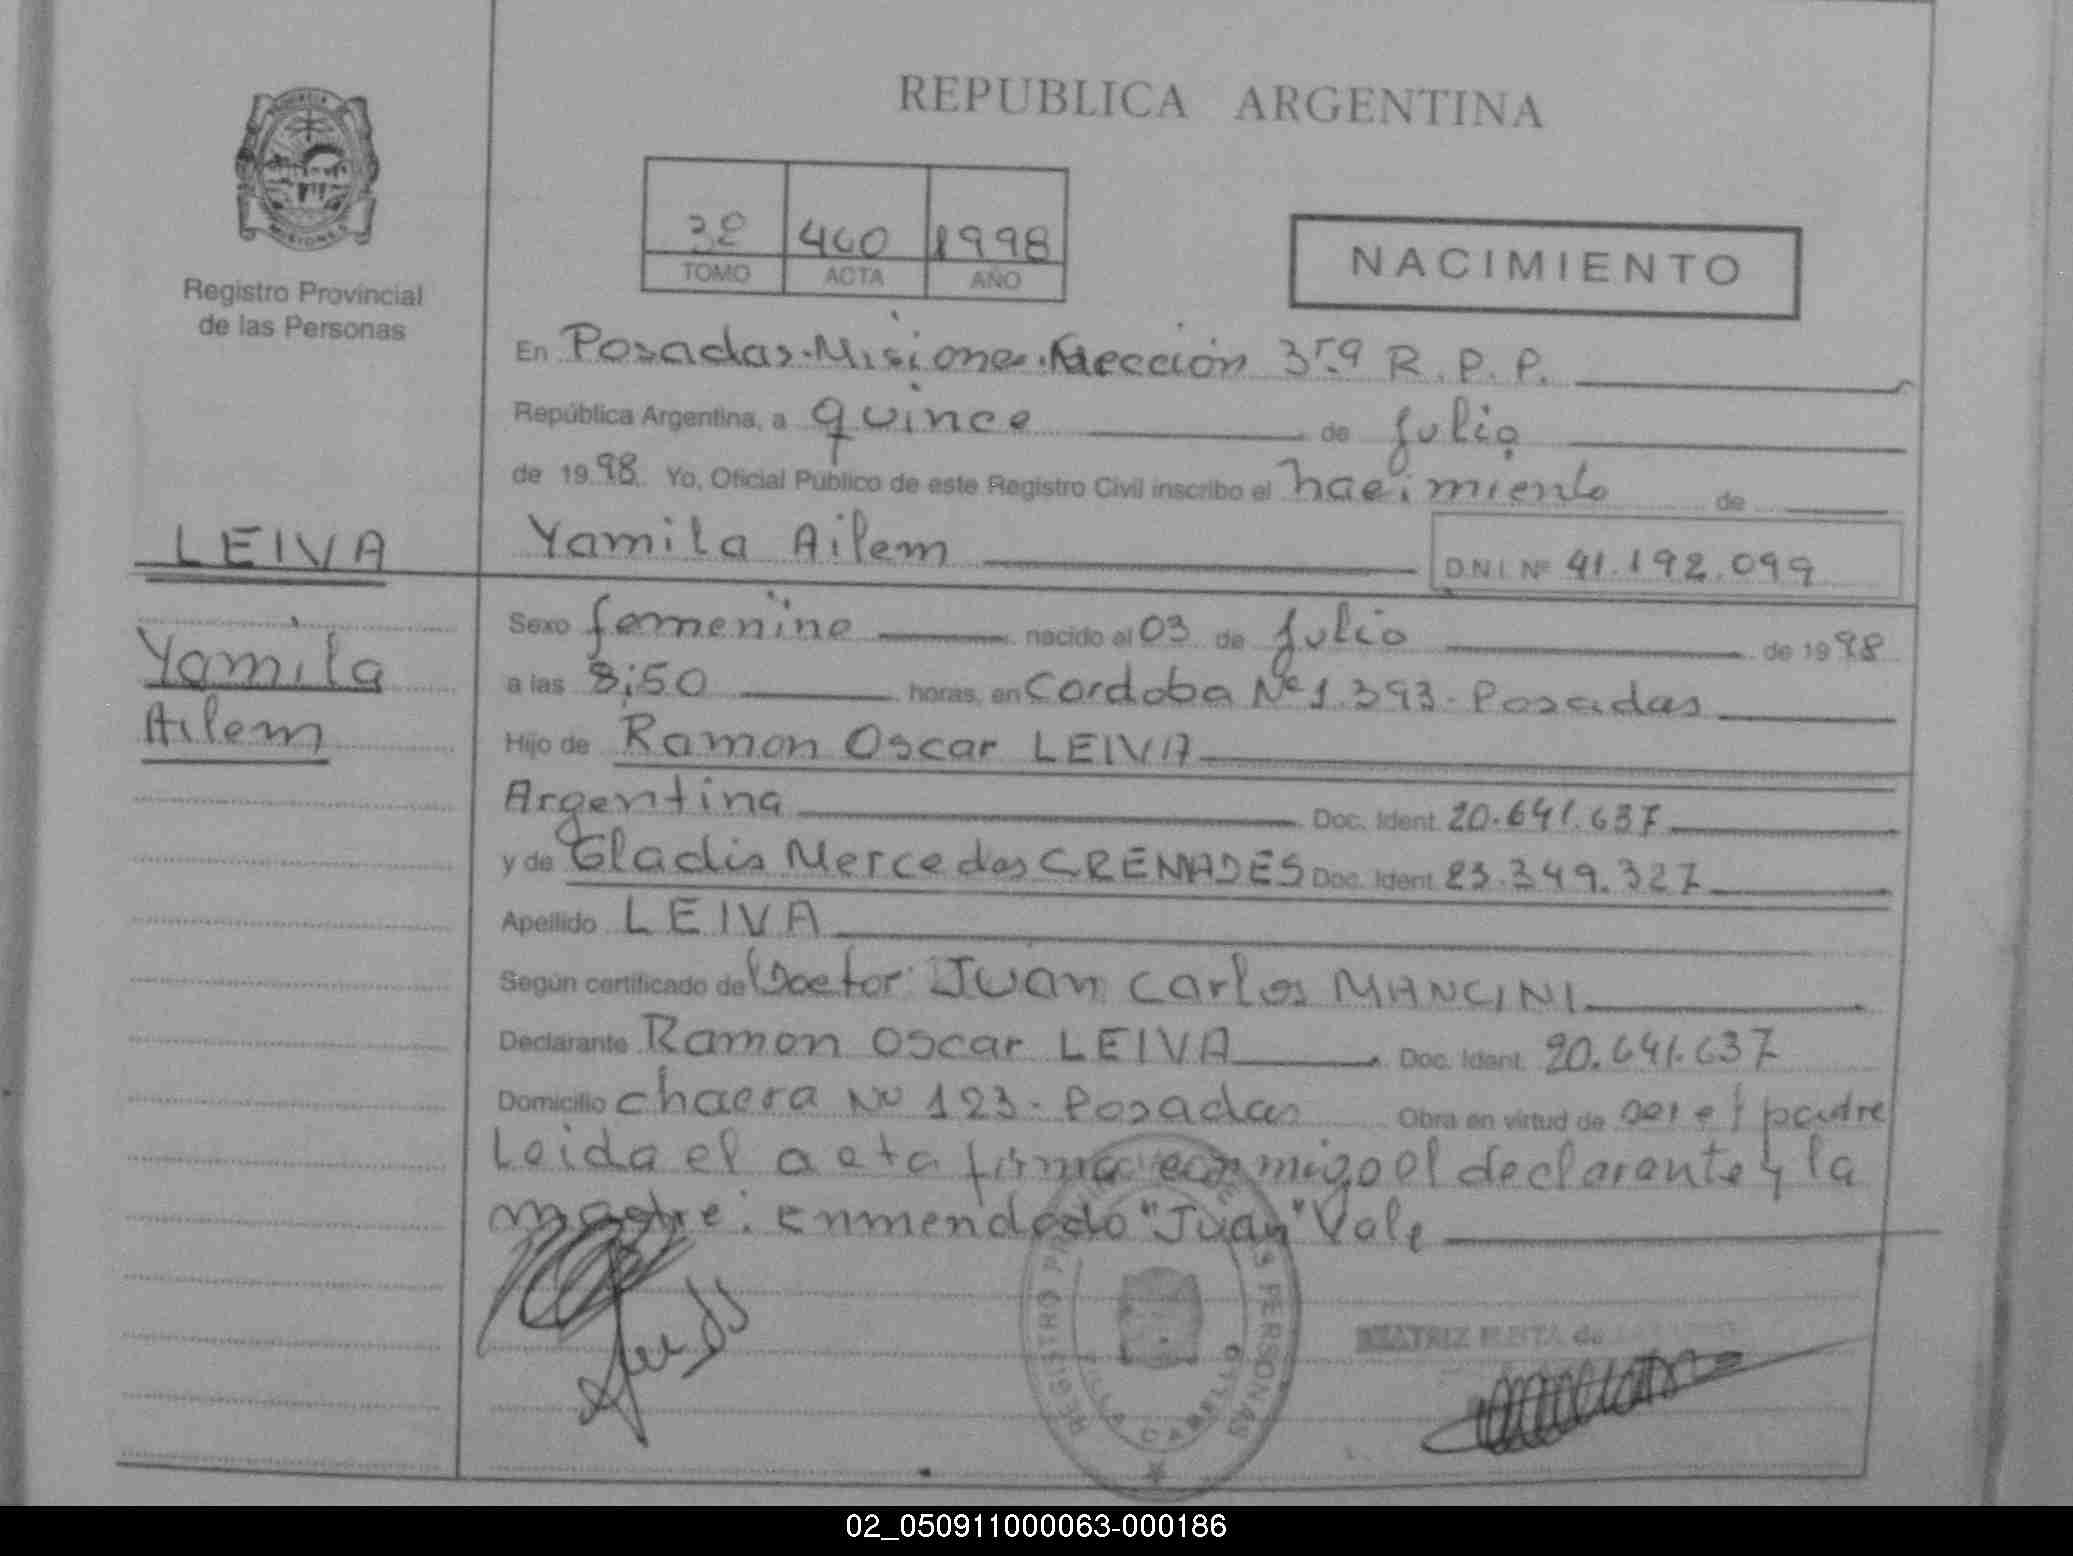 REPUBLICA ARGENTINA
PROVINCIA
MISIONES
Registro Provincial
de las Personas
3º 460 1998
TOMO ACTA AÑO
NACIMIENTO
En Posadas-Misiones. Sección 3ra R.P.P.
República Argentina, a quince de Julio
de 1998 Yo, Oficial Público de este Registro Civil inscribo el nacimiento de
LEIVA
Yamila Ailem D.N.I. Nº 41.192.099
Yamila
Ailem
Sexo femenino nacido el 03 de Julio de 1998
a las 8;50 horas, en Cordoba Nº 1.393- Posadas
Hijo de Ramon Oscar LEIVA
Argentina Doc. Ident. 20.641.637
y de Gladis Mercedes CREMADES Doc. Ident. 23.349.327
Apellido LEIVA
Según certificado de Doctor Juan Carlos MANCINI
Declarante Ramon Oscar LEIVA Doc. Ident. 20.641.637
Domicilio chacra Nº 123- Posadas Obra en virtud de ser el padre
Leida el acta firma conmigo el declarante y la
madre: enmendado "Juan" Vale
REGISTRO PROVINCIAL DE LAS PERSONAS
VILLA CABELLO
BEATRIZ de
02_050911000063-000186